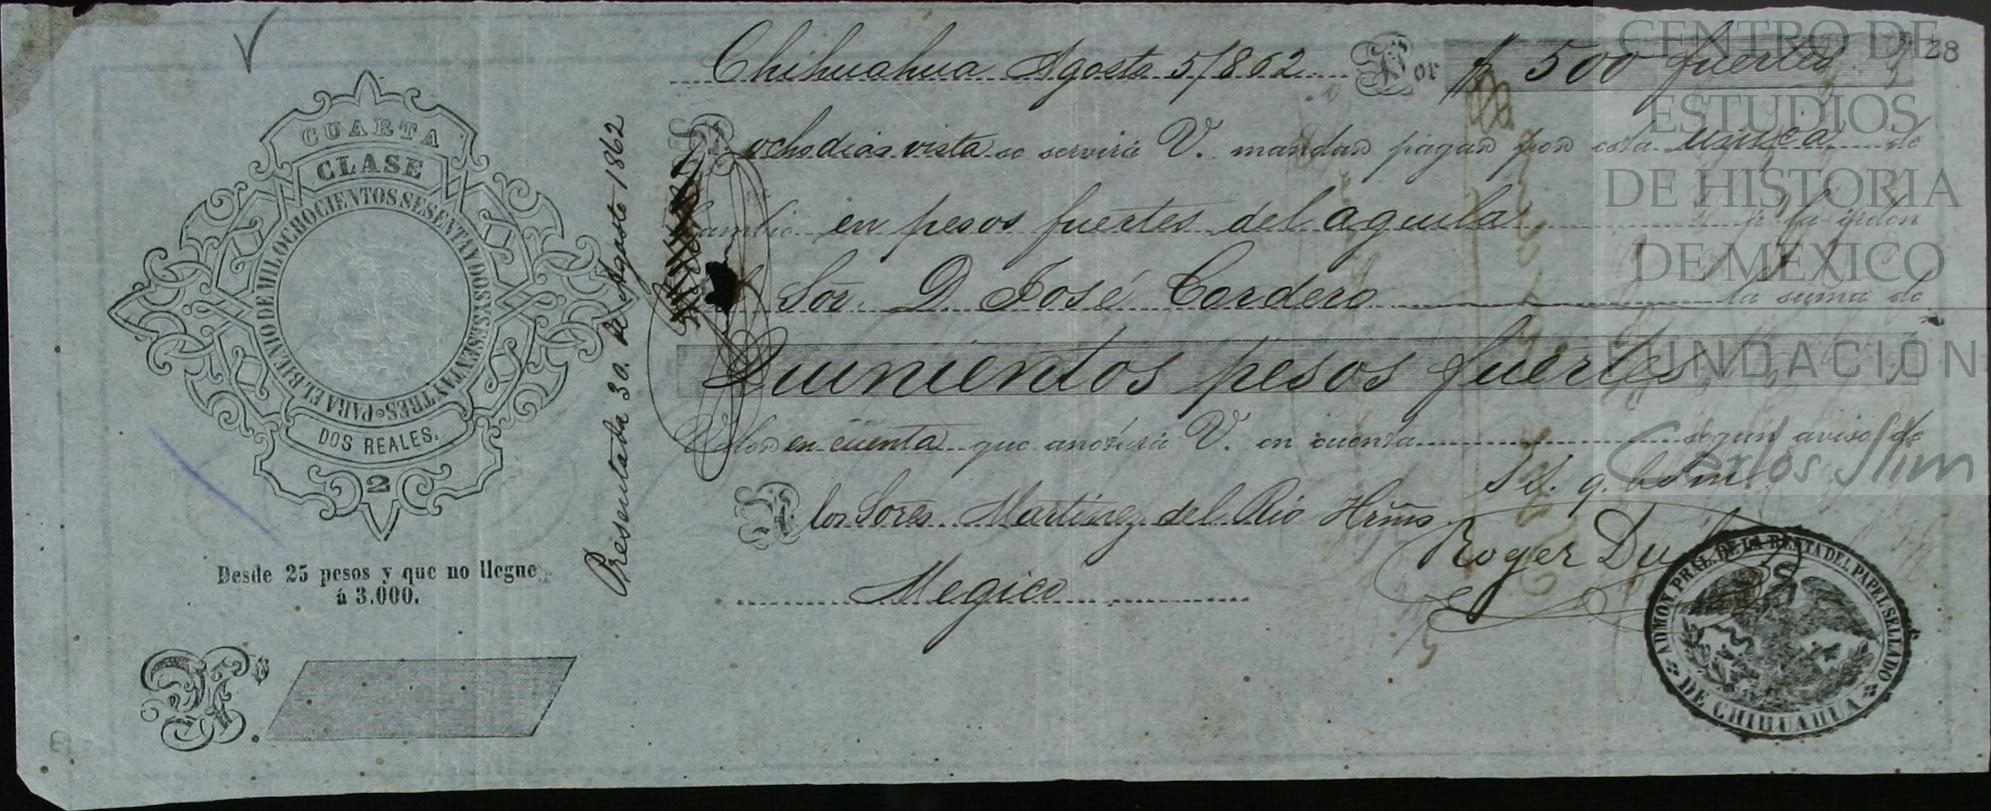 CUARTA
CLASE
PARA EL BIENIO DE MIL OCHOCIENTOS SESENTA Y DOS Y SESENTA Y TRES
DOS REALES.
2
Desde 25 pesos y que no llegue
á 3.000.
Nº.
Presentada 30. de Agosto 1862
Chihuahua Agosto 5/862. Por $ 500 fuertes
28
A ocho dias vista se servirá V. mandar pagar por esta unica de
cambio en pesos fuertes del aguila á la órden
Sor. D. José Cordero la suma de
Quinientos pesos fuertes
Valor en cuenta que anotará V. en cuenta segun aviso de
S.S. q. b. s. m.
A los Sores. Martinez del Rio Hrms
Roger
Megico
ADMON. PRAL. DE LA RENTA DEL PAPEL SELLADO
DE CHIHUAHUA
CENTRO DE
ESTUDIOS
DE HISTORIA
DE MEXICO
FUNDACIÓN
Carlos Slim